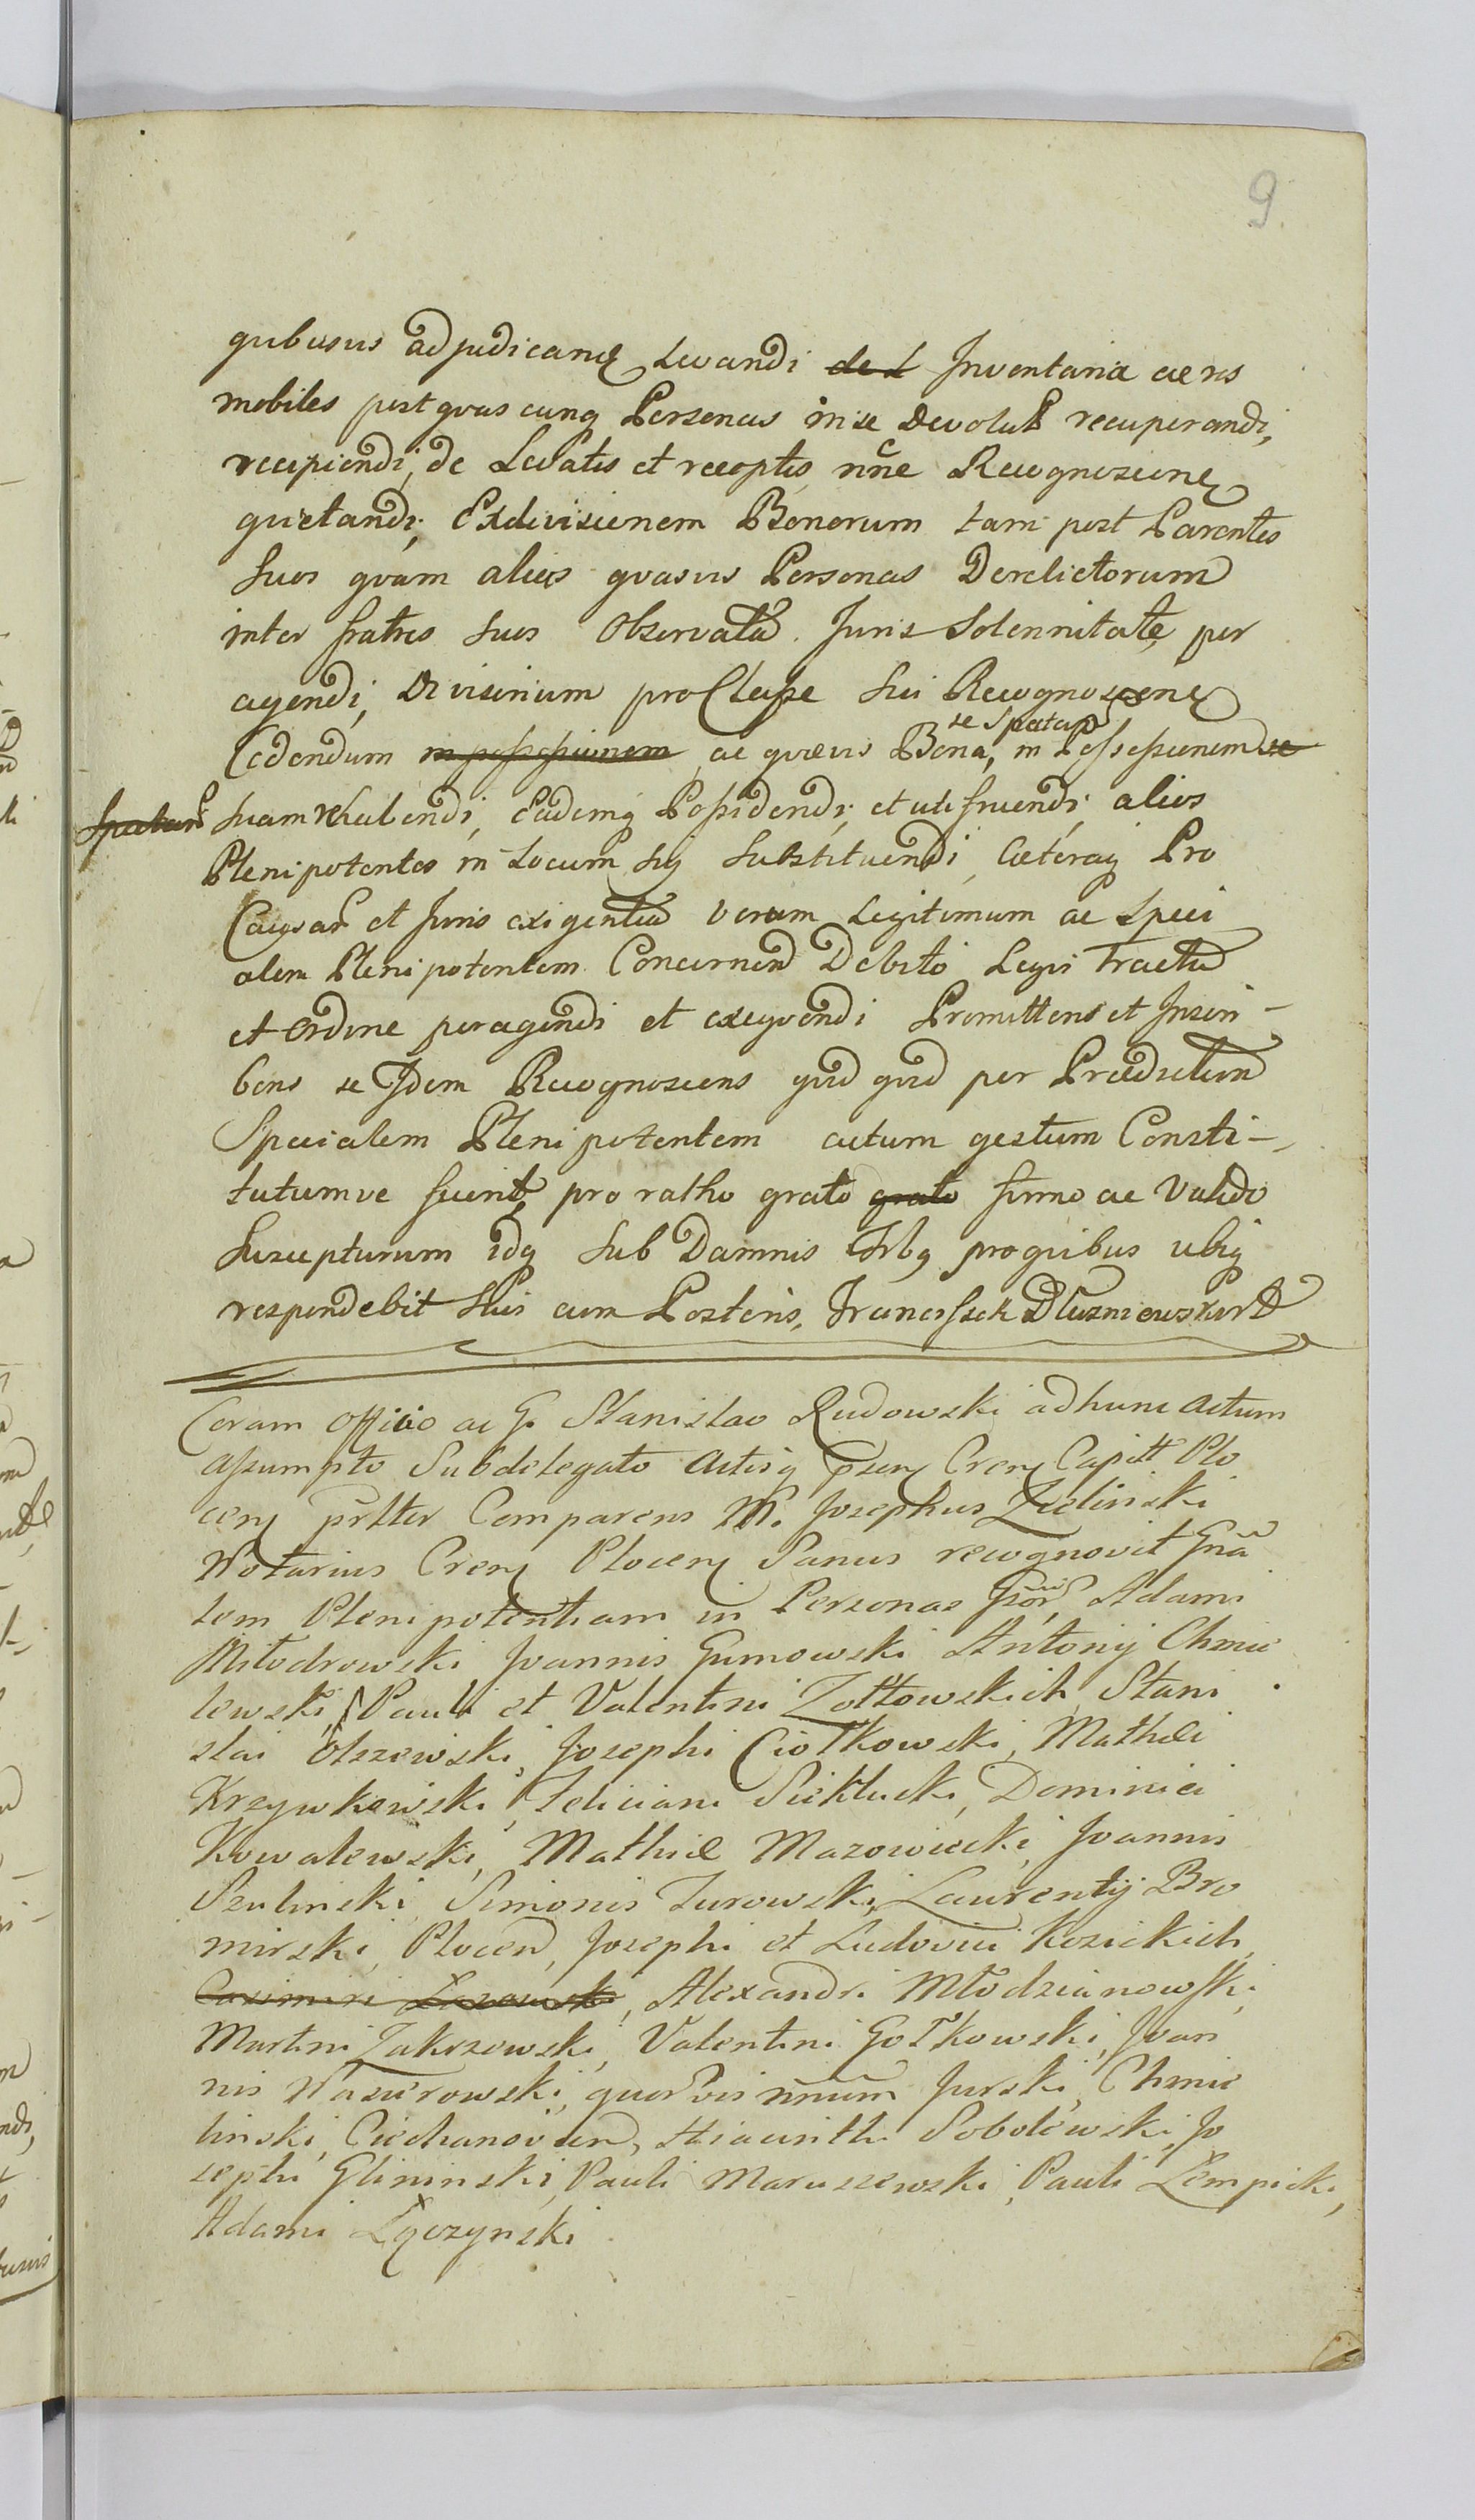 9
qvibusvis adjudicand Levandi de L Inventaria ac res
mobiles post qvascunq Personas in se Devolut recuperandi,
recipiendi, de Levatis et receptis nne Recognoscen
quietandi; Exdivisionem Bonorum tam post Parentes
Suos qvam alias qvasvis Personas Derelictorum
inter fratres Suos Observata Juris Solennitate, per
agendi, Divisivium pro Classe Sui Recognoscen
se spectan
Cedendum in possessionem ac qvævis Bona, in Possessionem se
spectan Suam rehabendi, Eademq Possidendi, et utifruendi alios
Plenipotentes in Locum Sui Substituendi, Cæteraq Pro
Causar et Juris exigentia Verum Legitimum ac Speci
alem Plenipotentem Concernen Debito Legis Tractu
et Ordine peragendi et exeqvendi Promittens et Inscri-
bens se Idem Recognoscens qvid qvid per Prædictum
Specialem Plenipotentem actum gestum Consti-
tutumve fuerit, pro ratho grato grato firmo ac Valido
Suscepturum idq Sub Damnis Trbq pro quibus ubiq
respondebit Suis cum Posteris, Franciszek Dłuzniewski
Coram Officio ac G. Stanislao Rudowski ad hunc Actum
assumpto Subdelegato Actisq psen Cren Capitt Plo
cen prstter Comparens M. Josephus Zielinski
Notarius Cren Plocen Sanus recognovit Gna
lem Plenipotentiam in Personas Gsor, Adami
Miłodrowski Joannis Gumowski Antonij Chmie
lewski, Pauli et Valentini Zołtowskich, Stani
slai Olszewski, Josephi Ciołkowski, Mathei
Krzywkowski, Feliciani Siekłucki, Dominici
Kowalewski, Mathiæ Mazowiecki, Joannis
Szulinski, Simonis Turowski, Laurentij Bro
mirski, Plocen, Josephi et Ludovici Kosickich
Casimiri Łazowski, Alexandri Młodzianowski,
Martini Zakrzewski, Valentini Gołkowski, Joan
nis Nasierowski, quorvis nnum Jurski, Chmie
linski, Ciechanovien, Hiacinthi Sobolewski, Jo
sephi Glininski, Pauli Maruszewski, Pauli Łempicki,
Adami Łączynski